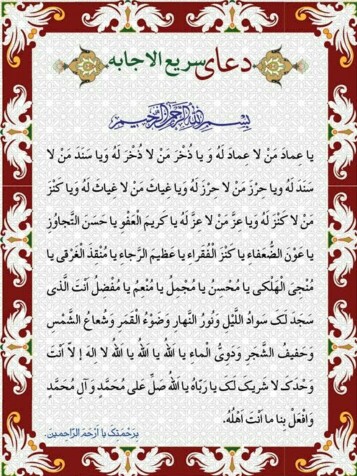 دعای سریع الاجابه
بِسْمِ اللهِ الرَّحْمنِ الرَّحیمِ
یا عِمادَ مَنْ لا عِمادَ لَهُ وَ یا ذُخْرَ مَنْ لا ذُخْرَ لَهُ وَیا سَنَدَ مَنْ لا
سَنَدَ لَهُ ویا حِرْزَ مَنْ لا حِرْزَ لَهُ وَیا غِیاثَ مَنْ لا غِیاثَ لَهُ وَیا کَنْزَ
مَنْ لا کَنْزَ لَهُ وَیا عِزَّ مَنْ لا عِزَّ لَهُ یا کَریمَ الْعَفْوِ یا حَسَنَ التَّجاوُزِ
یا عَوْنَ الضُّعَفاءِ یا کَنْزَ الْفُقَراءِ یا عَظیمَ الرَّجاءِ یا مُنْقِذَ الْغَرْقی یا
مُنْجِیَ الْهَلْکی یا مُحْسِنُ یا مُجْمِلُ یا مُنْعِمُ یا مُفْضِلُ اَنْتَ الَّذی
سَجَدَ لَکَ سَوادُ اللَّیْلِ وَنُورُ النَّهارِ وَضَوْءُ الْقَمَرِ وَشُعاعُ الشَّمْسِ
وَحَفیفُ الشَّجَرِ وَدَوِیُّ الْماءِ یا اَللهُ یا اَللهُ یا اَللهُ لا اِلهَ إلاّ اَنْتَ
وَحْدَکَ لا شَریکَ لَکَ یا رَبّاهُ یا اَللهُ صَلِّ عَلی مُحَمَّدٍ وَآلِ مُحَمَّدٍ
وَافْعَلْ بِنا ما اَنْتَ اَهْلُهُ.
بِرَحْمَتِکَ یا اَرْحَمَ الرّاحِمین.